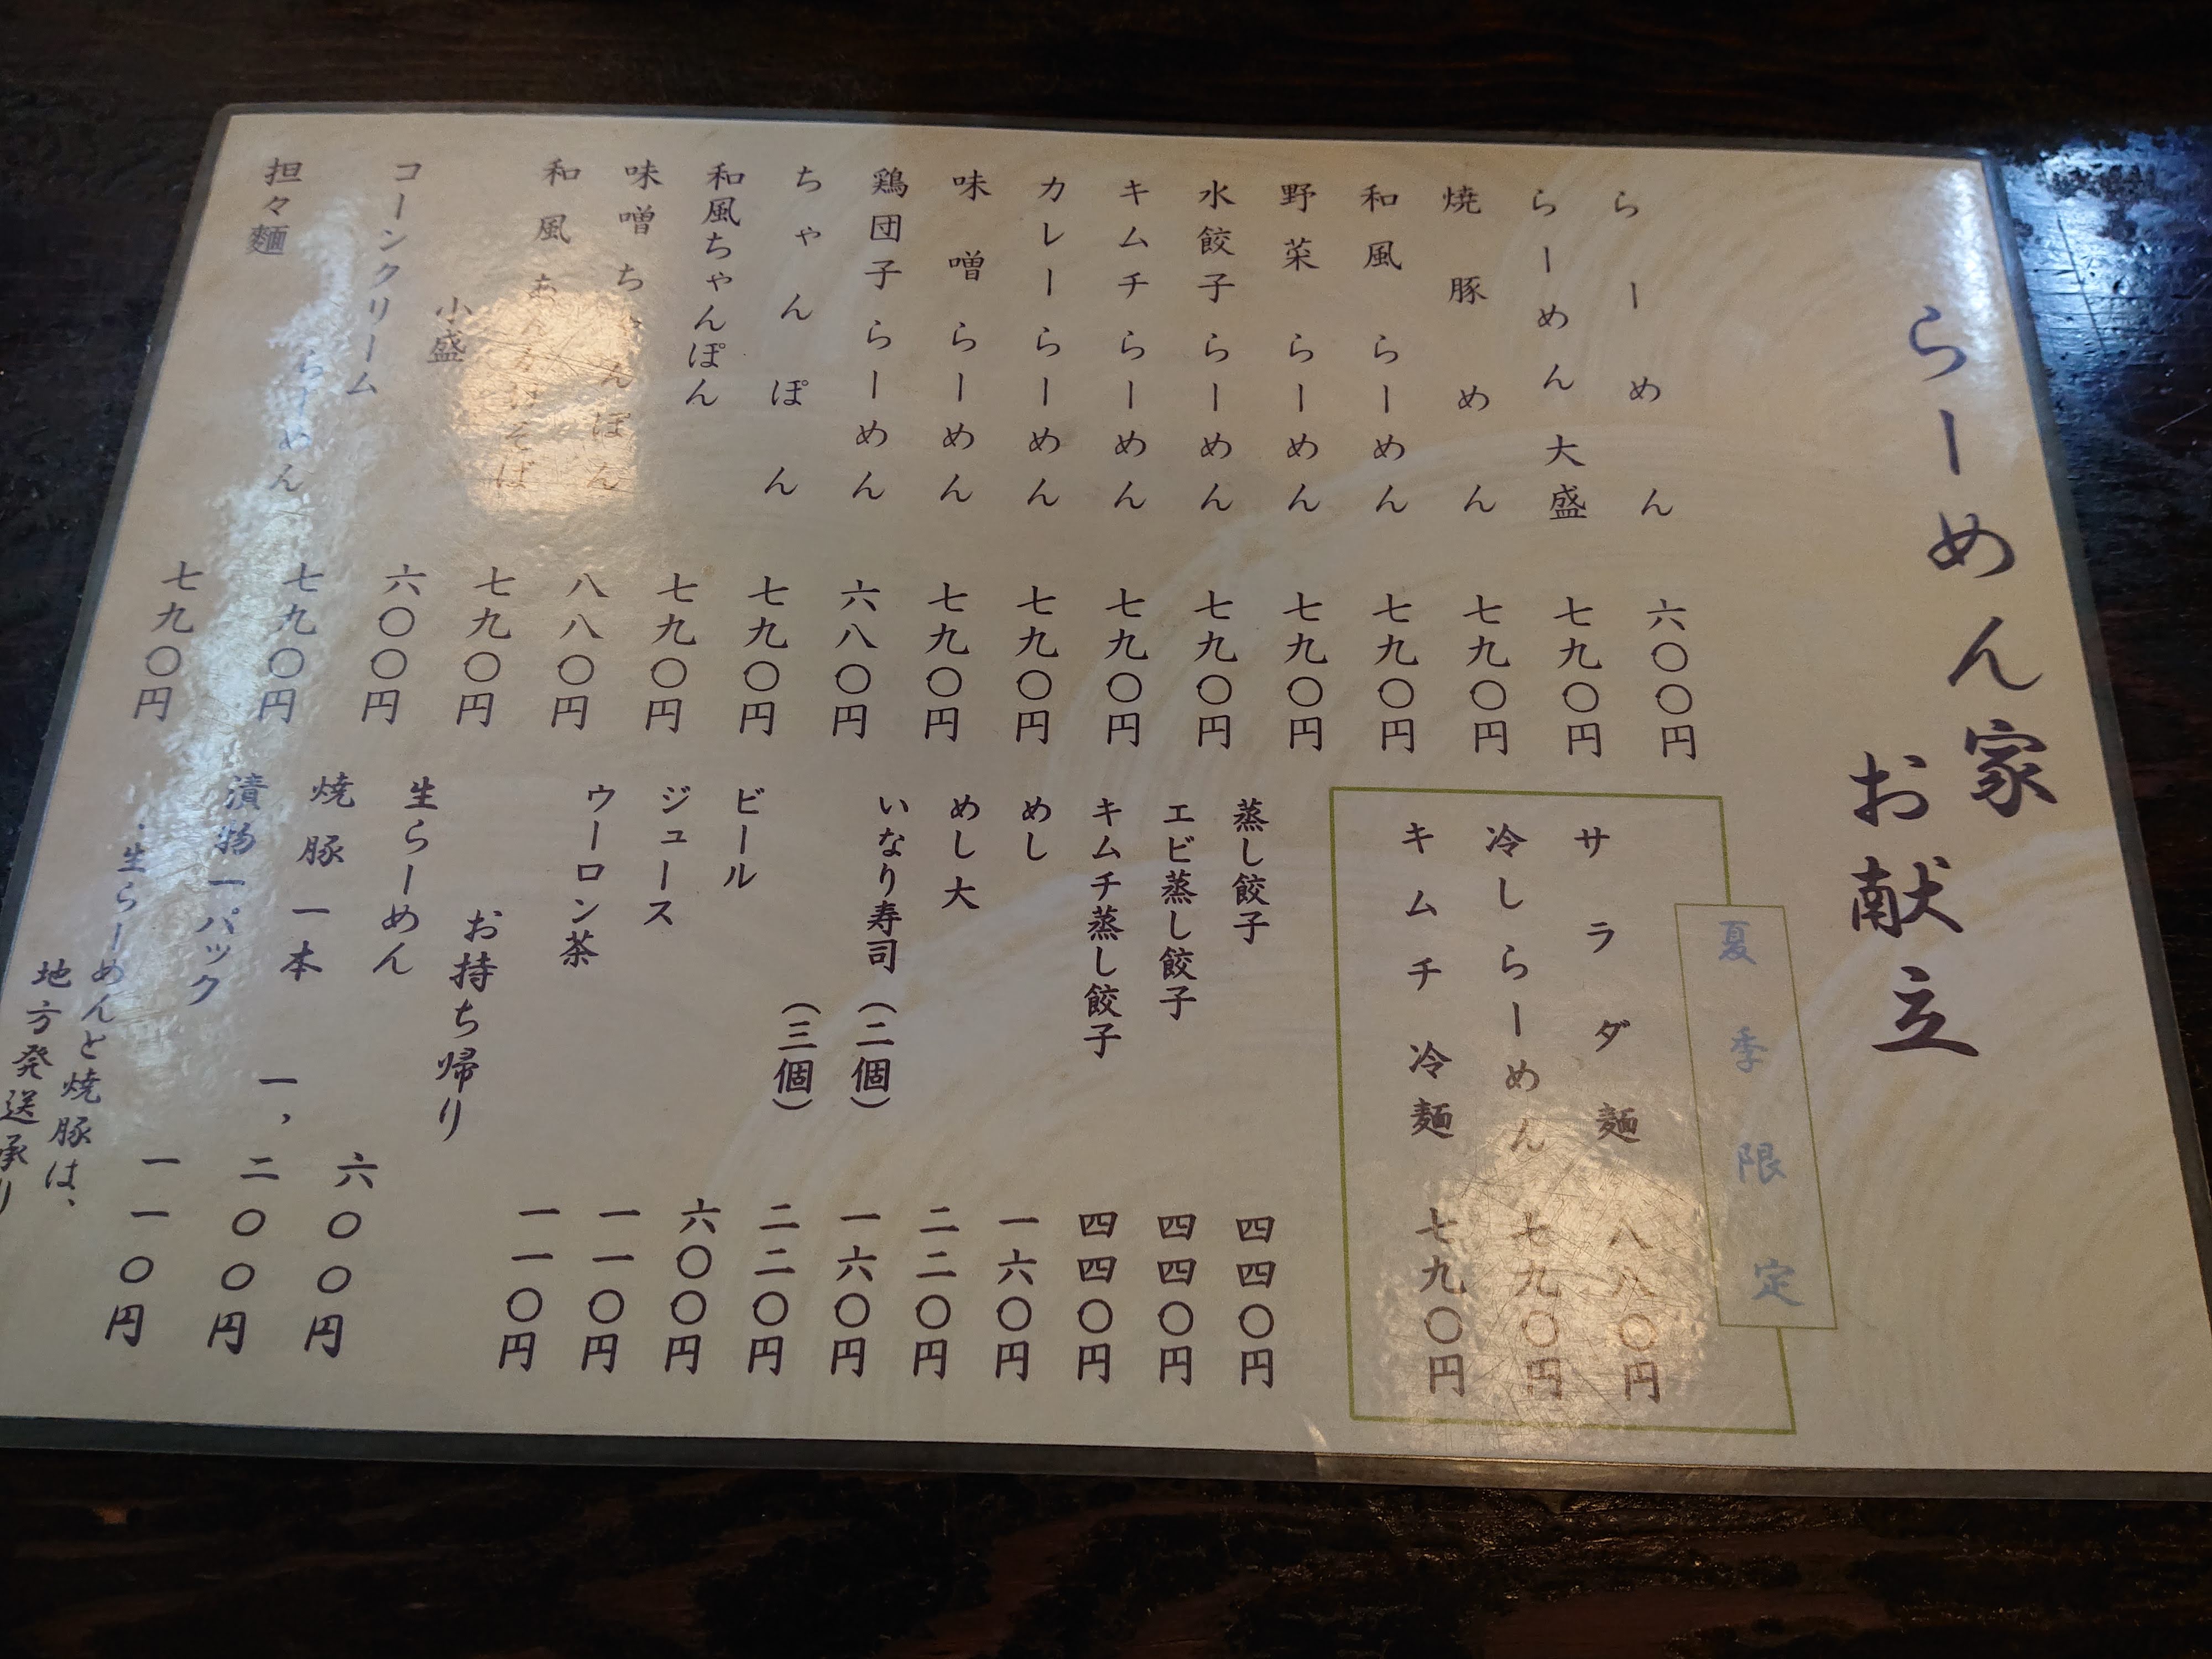 らーめん家
お献立
らーめん 六〇〇円
らーめん大盛 七九〇円
焼豚めん 七九〇円
和風らーめん 七九〇円
野菜らーめん 七九〇円
水餃子らーめん 七九〇円
キムチらーめん 七九〇円
カレーらーめん 七九〇円
味噌らーめん 七九〇円
鶏団子らーめん 六八〇円
ちゃんぽん 七九〇円
和風ちゃんぽん 七九〇円
味噌ちゃんぽん 八八〇円
和風あんかけそば 七九〇円
小盛 六〇〇円
コーンクリーム
らーめん 七九〇円
担々麺 七九〇円
夏季限定
サラダ麺 八八〇円
冷しらーめん 七九〇円
キムチ冷麺 七九〇円
蒸し餃子 四四〇円
エビ蒸し餃子 四四〇円
キムチ蒸し餃子 四四〇円
めし 一六〇円
めし大 二二〇円
いなり寿司(二個) 一六〇円
(三個) 二二〇円
ビール 六〇〇円
ジュース 一一〇円
ウーロン茶 一一〇円
お持ち帰り
生らーめん 六〇〇円
焼豚一本 一,二〇〇円
漬物一パック 一一〇円
・生らーめんと焼豚は、
地方発送承り